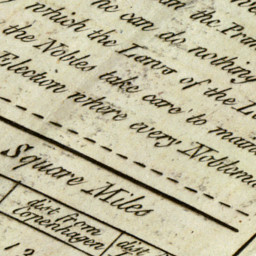 can do nothing
which the Laws of the
the Nobles take care to
Election where every Noblema
Square Miles
dist from
Copenhagen
dist